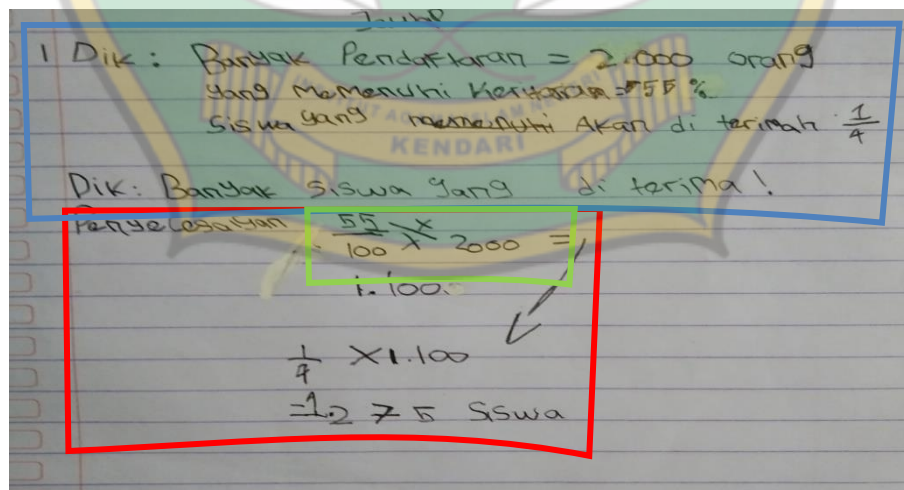 Jawab
1 Dik: Banyak Pendaftaran = 2.000 orang
yang memenuhi = 55 %
Siswa yang memenuhi Akan di terimah 1/4
KENDARI
Dik: Banyak siswa yang di terima!
Penyelesaian : 55/100 x 2000 =
1.100
1/4 X 1.100
=1.275 Siswa